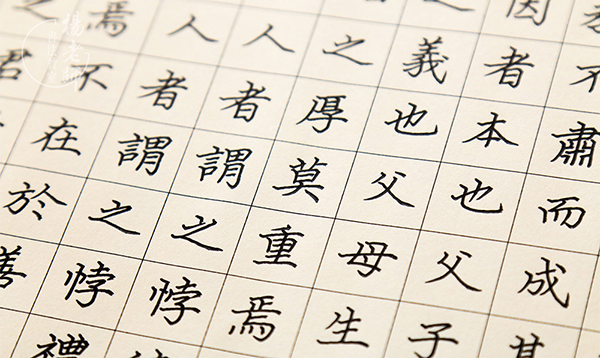 不肅而成其
因者本也父子
義也父母生
之厚莫重焉
人者謂之悖
人者謂之悖禮
焉不在於善
之君